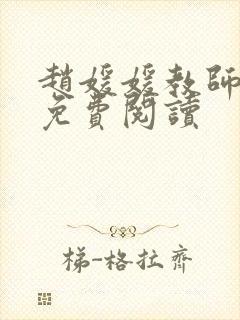 趙媛媛教師
免費閱讀
梯-格拉齊